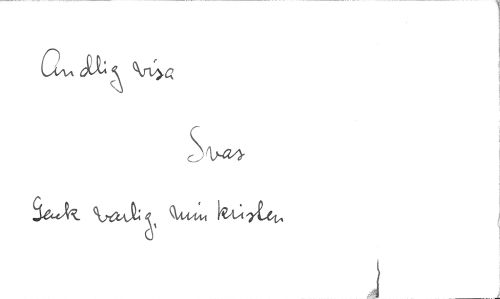 Andlig visa
Svas
Gack varlig, min kristen